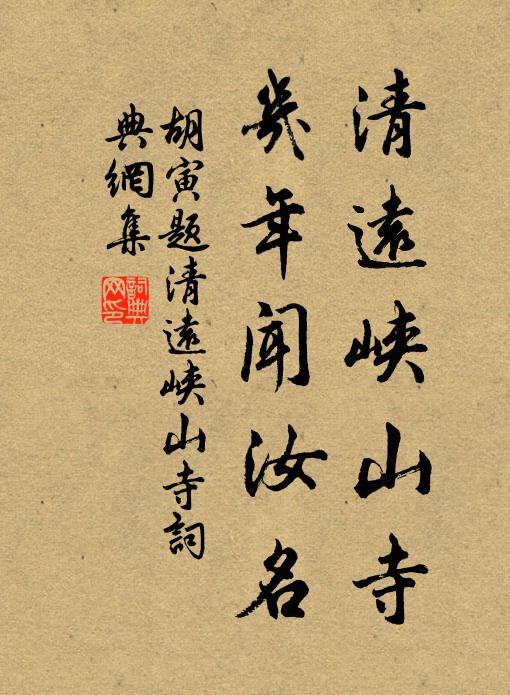 清遠峽山寺
幾年聞汝名
胡寅題清遠峽山寺詞
典網集
詞典网印